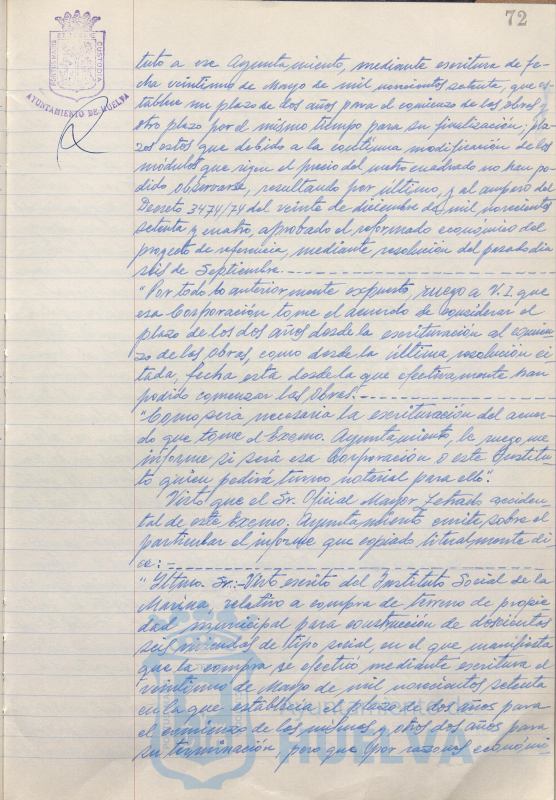 72
AYUNTAMIENTO DE HUELVA
tuto a ese Ayuntamiento, mediante escritura de fe-
cha veintiuno de Mayo de mil novecientos setenta, que es-
tablece un plazo de dos años para el comienzo de las obras y
otro plazo por el mismo tiempo para su finalización; pla-
zos estos que debido a la continua modificación de los
módulos que rigen el precio del metro cuadrado no han po-
dido observarse, resultando por último, y al amparo del
Decreto 3474/74 del veinte de diciembre de mil novecientos
setenta y cuatro, aprobado el reformado económico del
proyecto de referencia, mediante resolución del pasado dia
seis de Septiembre.
"Por todo lo anteriormente expuesto, ruego a V.I. que
esa Corporación tome el acuerdo de considerar el
plazo de los dos años desde la escrituración al comien-
zo de las obras, como desde la última resolución ci-
tada, fecha esta desde la que efectivamente han
podido comenzar las obras.
"Como será necesaria la escrituración del acuer-
do que tome el Excmo. Ayuntamiento, le ruego me
informe si será esa Corporación o este Institu-
to quien pedirá turno notarial para ello".
Visto que el Sr. Oficial Mayor Letrado acciden-
tal de este Excmo. Ayuntamiento emite sobre el
particular el informe que copiado literalmente di-
ce: =
"Iltmo. Sr.: Visto escrito del Instituto Social de la
Marina, relativo a compra de terreno de propie-
dad municipal para construcción de doscientas
seis viviendas de tipo social, en el que manifiesta
que la compra se efectuó mediante escritura el
veintiuno de Mayo de mil novecientos setenta
en la que establecía el plazo de dos años para
el comienzo de las mismas y otros dos años para
su terminación, pero que por razones económi-
HUELVA